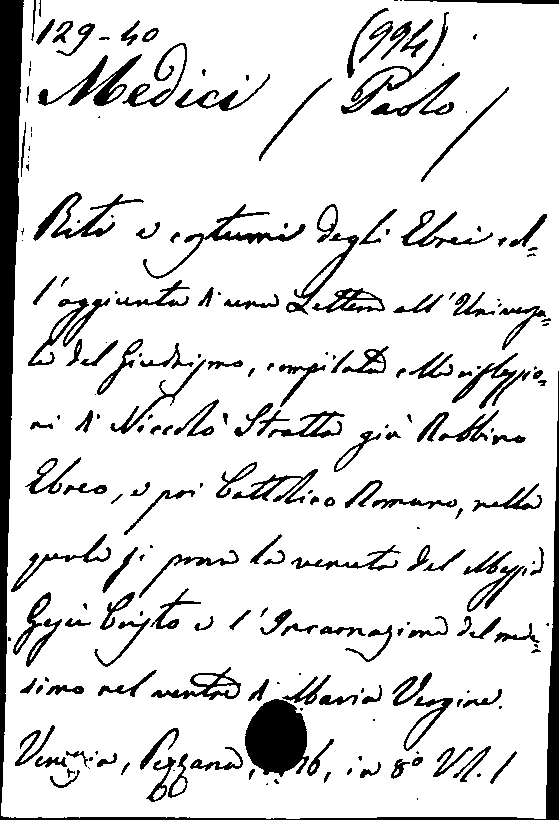 129-40 (994)
Medici / Paolo /
Riti e costumi degli Ebrei col=
l'aggiunta di una Lettera all' Univerſa=
le del Giudaiſmo, compilata colle rifleſſio=
ni di Niccolò Stratta già Rabbino
Ebreo, e poi Cattolico Romano, nella
quale ſi prova la venuta del Meſſia
Geſù Criſto e l'Incarnazione del mede=
simo nel ventre di Maria Vergine.
Venezia, Pezzana, 6, in 8° Vol. 1